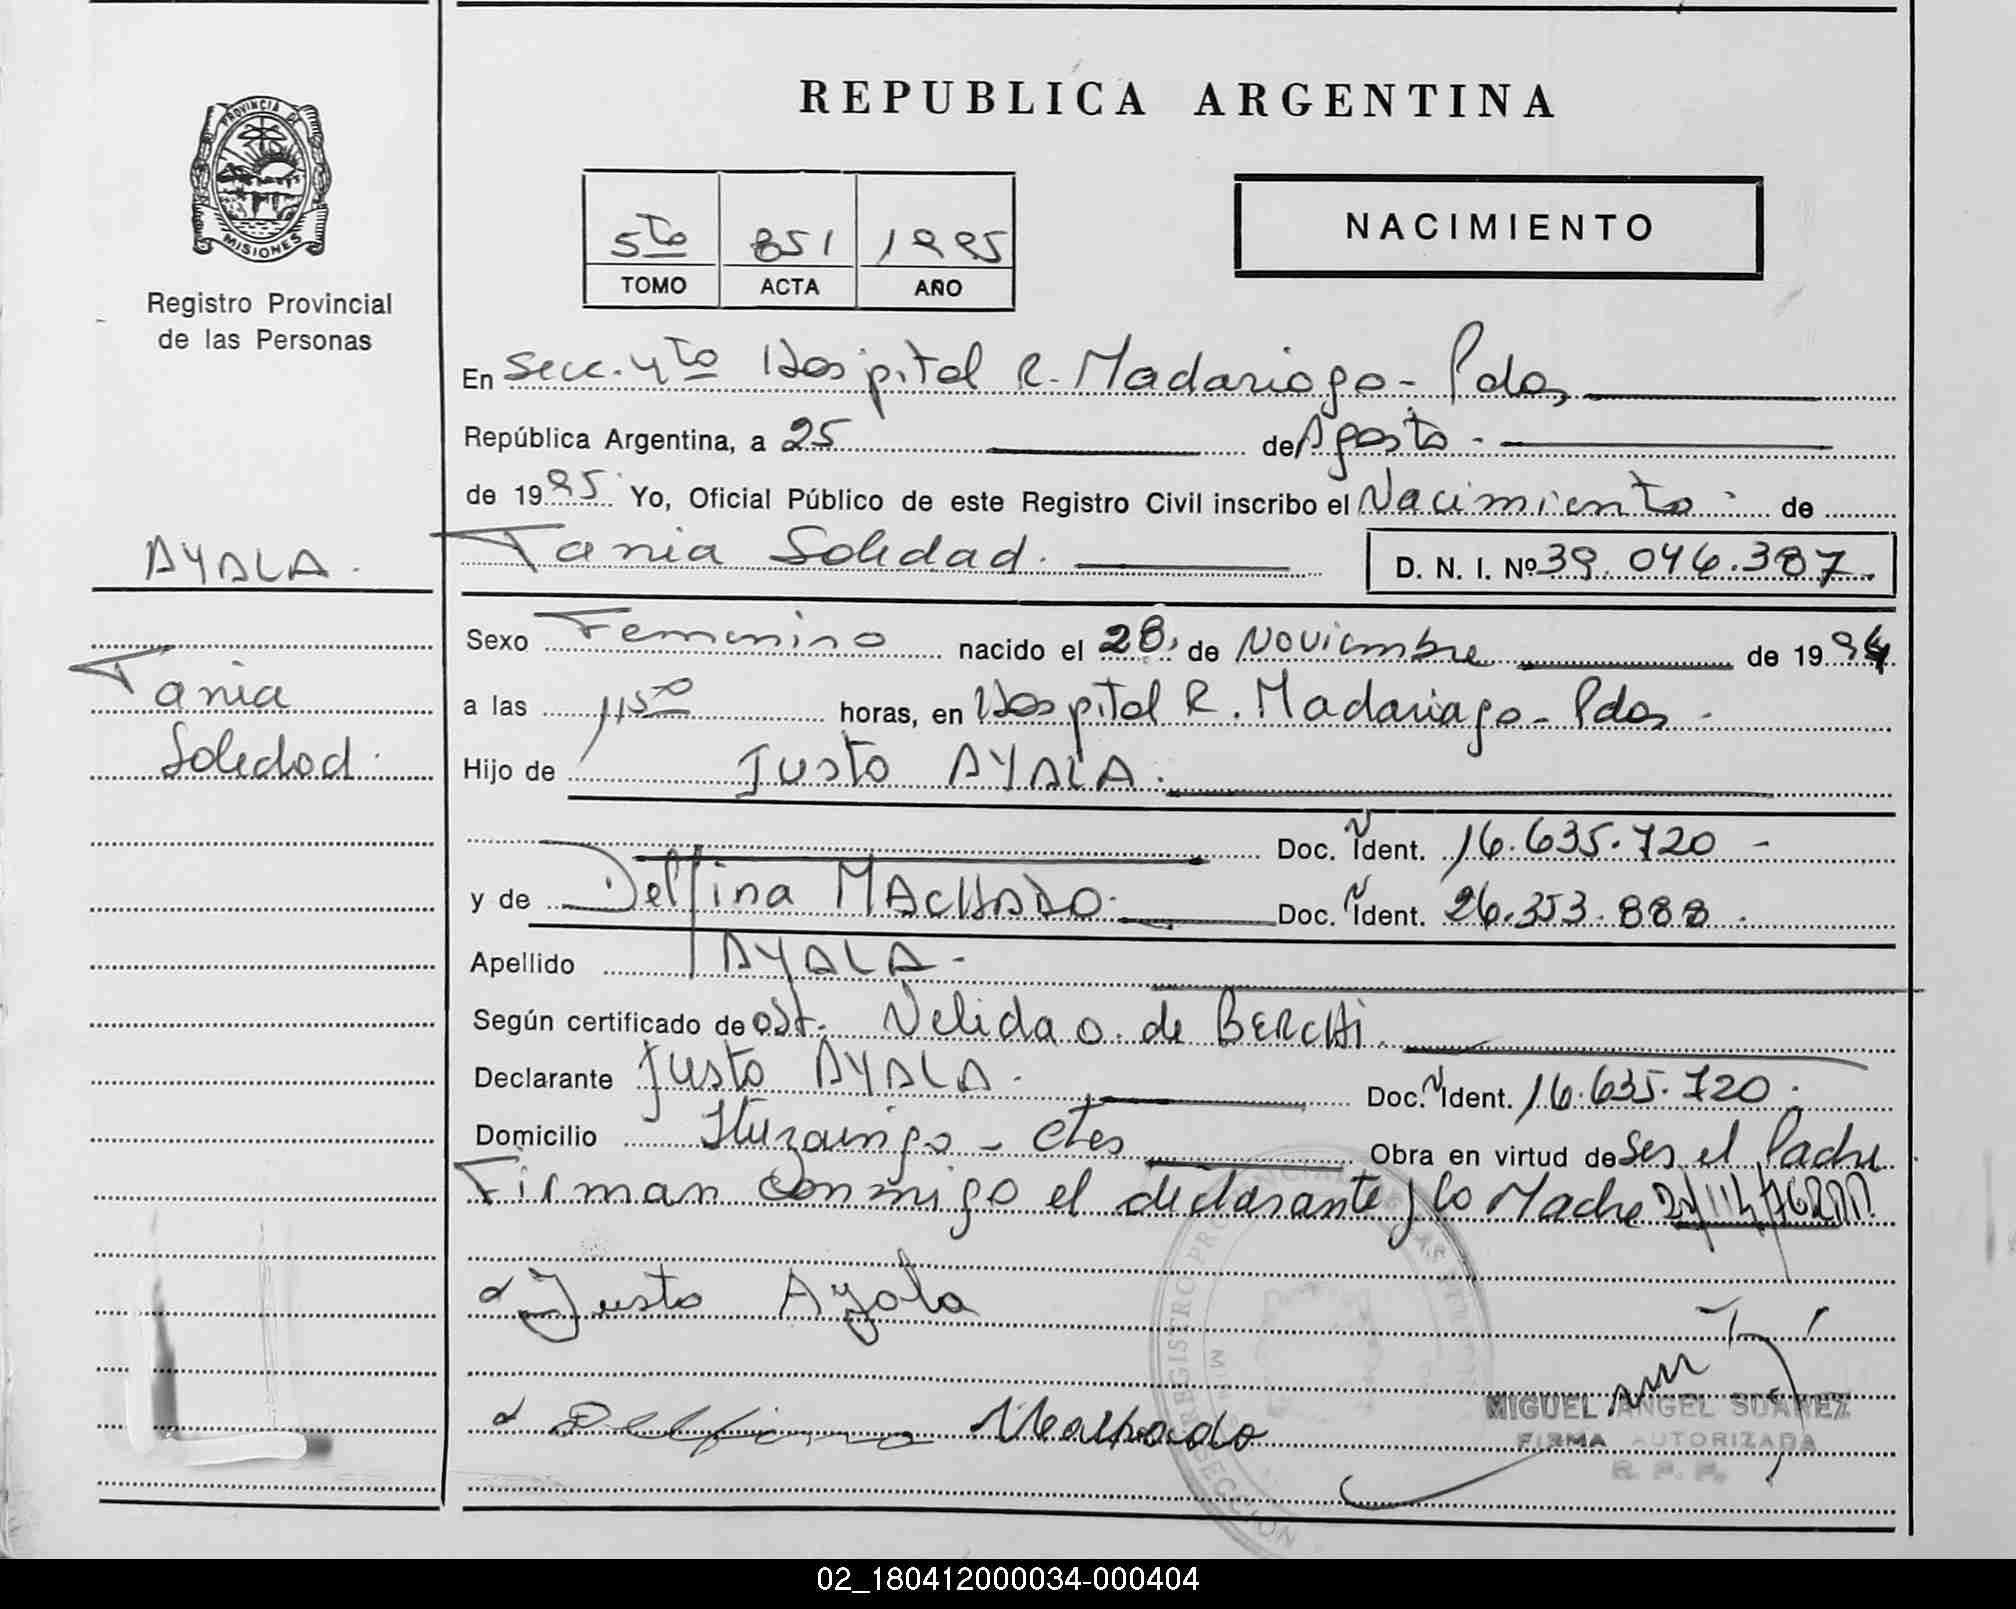 PROVINCIA DE
MISIONES
Registro Provincial
de las Personas
AYALA.
Tania
Soledad.
REPUBLICA ARGENTINA
5to 851 1995
TOMO ACTA AÑO
NACIMIENTO
En Secc. 4to Hospital R. Madariaga - Pdas,
República Argentina, a 25 de Agosto -
de 1995 Yo, Oficial Público de este Registro Civil inscribo el Nacimiento de
Tania Soledad. D. N. I. Nº 39.046.387.
Sexo Femenino nacido el 28, de Noviembre de 1994
a las 1150 horas, en Hospital R. Madariaga - Pdas -
Hijo de Justo AYALA.
Doc. Ident. 16.635.720 -
y de Delfina MACHADO. Doc. Ident. 26.353.888.
Apellido AYALA -
Según certificado de ost. Nelida O. de BERCHI.
Declarante Justo AYALA. Doc. Ident. 16.635.720.
Domicilio Ituzaingo - Ctes Obra en virtud de Ser el Padre
Firman conmigo el declarante y la Madre
Justo Ayala
Delfina Machado
REGISTRO
SECCION
MIGUEL ANGEL SUAREZ
FIRMA AUTORIZADA
R. P. P.
02_180412000034-000404